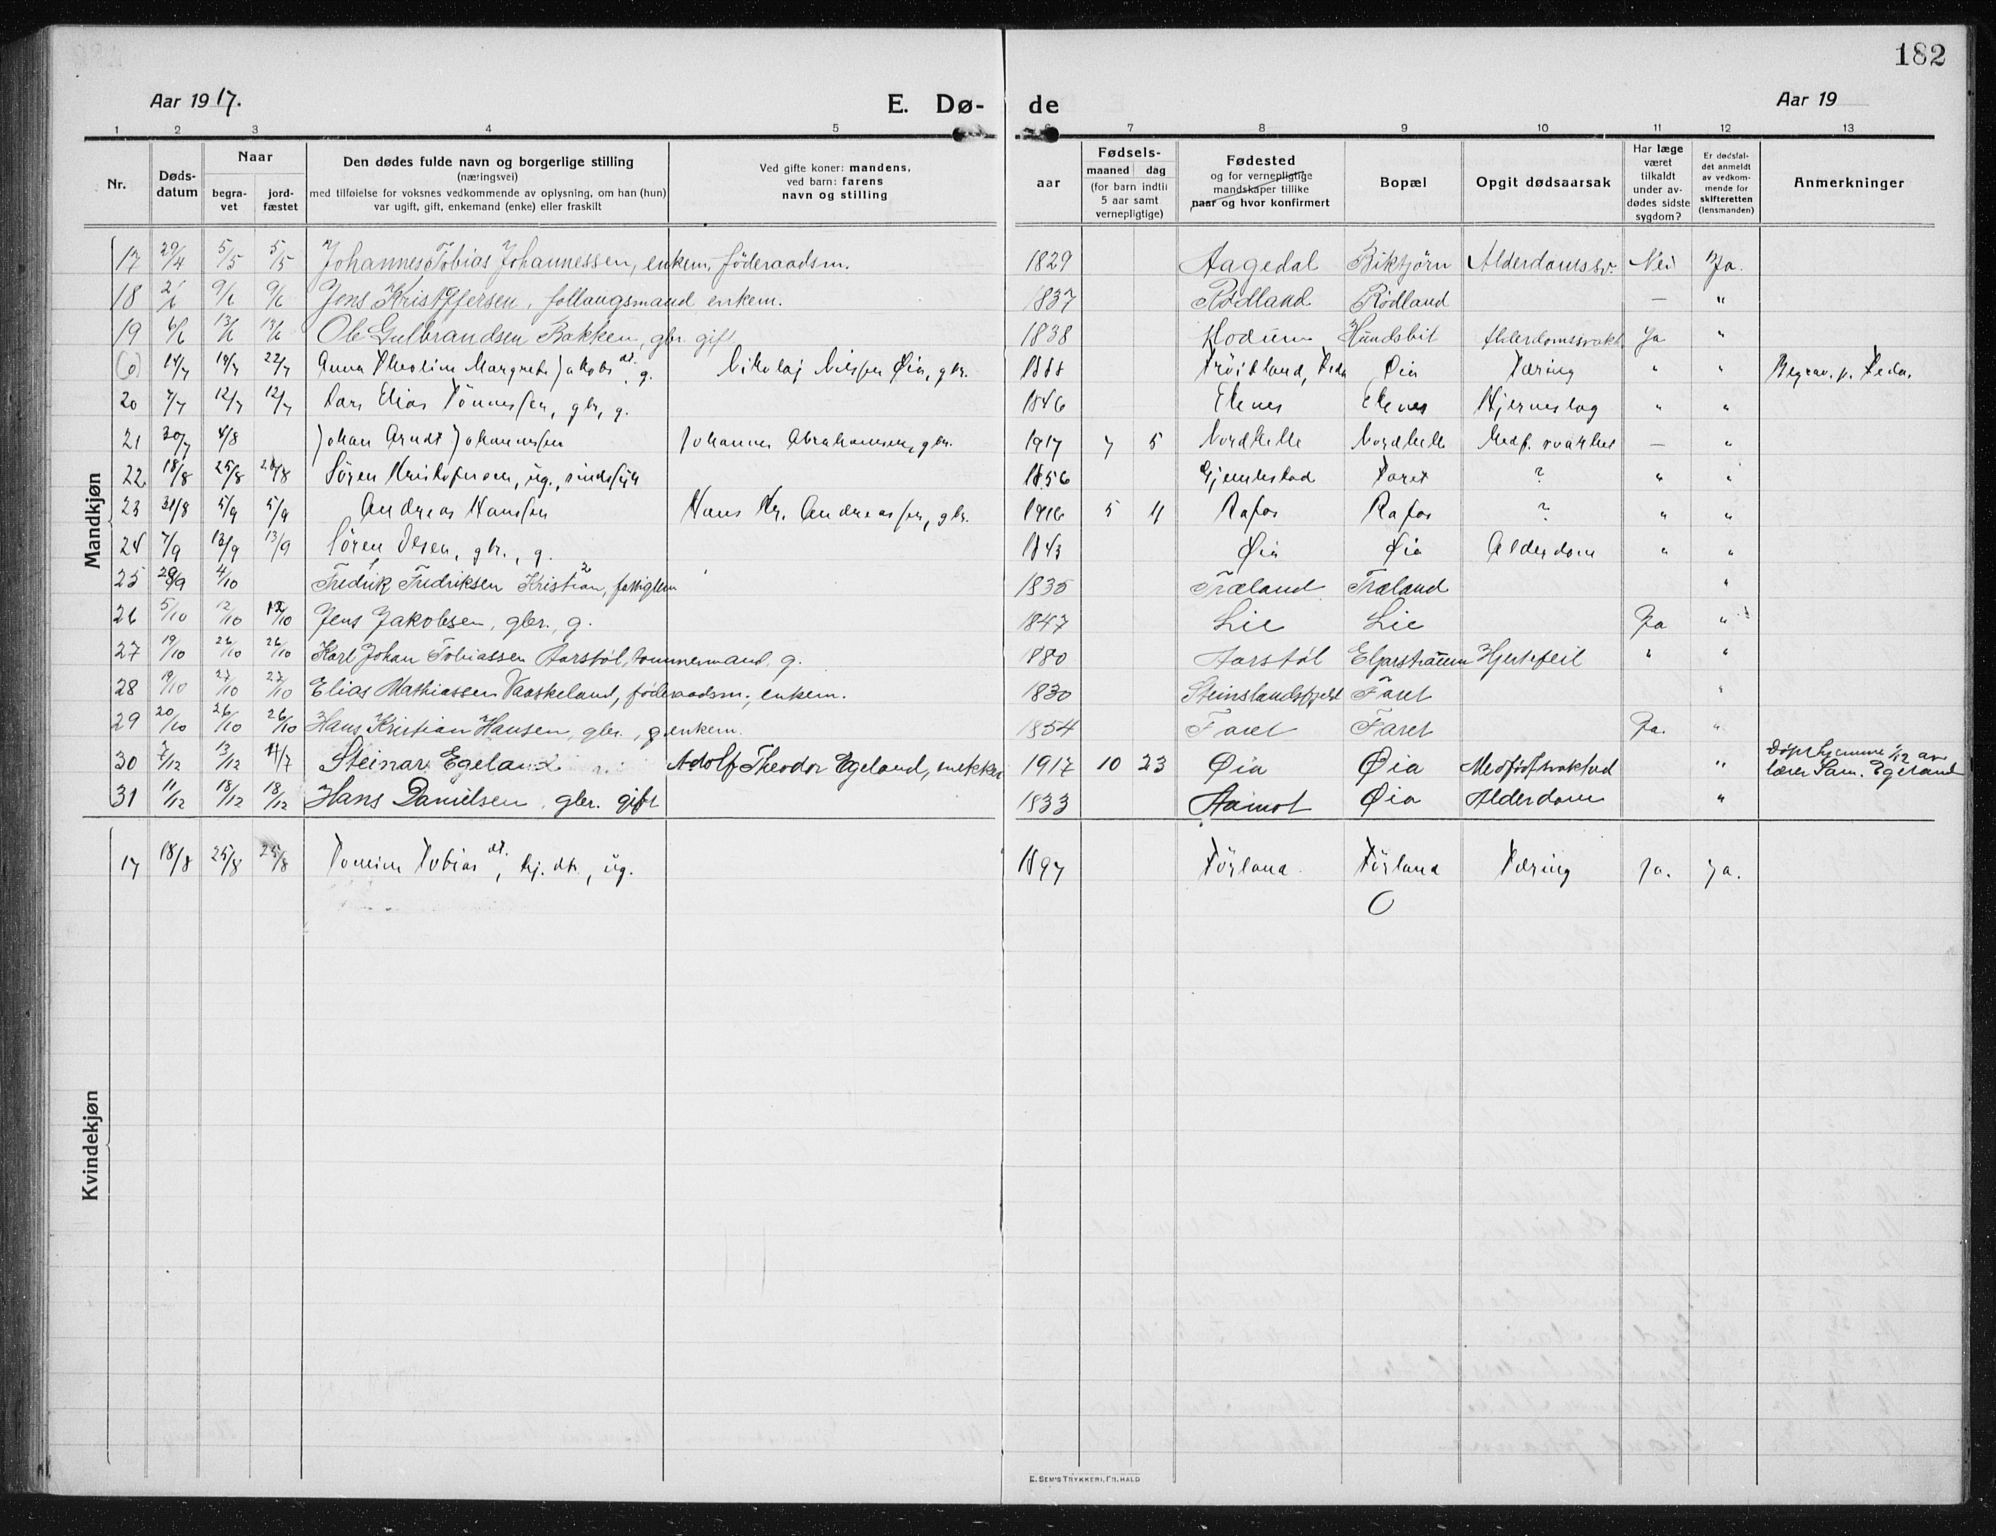 182
Aar 1917.
E. Dø-
de
Aar 19
1 2 3 4 5 6 7 8 9 10 11 12 13
Nr.
Dødsdatum
Naar
begravet
jordfæstet
Den dødes fulde navn og borgerlige stilling
(næringsvei)
med tilføielse for voksnes vedkommende av oplysning, om han (hun)
var ugift, gift, enkemand (enke) eller fraskilt
Ved gifte koner: mandens,
ved barn: farens
navn og stilling
Fødsels-
aar
maaned dag
(for barn indtil
5 aar samt
vernepligtige)
Fødested
og for vernepligtige
mandskaper tillike
naar og hvor konfirmert
Bopæl
Opgit dødsaarsak
Har læge
været
tilkaldt
under av-
dødes sidste
sygdom?
Er dødsfal-
det anmeldt
av vedkom-
mende for
skifteretten
(lensmanden)
Anmerkninger
Mandkjøn
17 29/4 5/5 5/5 Johannes Tobias Johannessen, enkem. føderaadsm. 1829 Aagedal Birktjørn Alderdomssv. Nei Ja.
18 2/6 9/6 9/6 Jens Kristoffersen, follaugsmand enkem. 1837 Rødland Rødland — "
19 6/6 13/6 13/6 Ole Gulbrandsen Bakken, gbr. gift 1838 Modum Hundsbit Alderdomssvakh Ja "
(6) 14/7 19/7 22/7 Anna Theoline Margrete Jakobsdt. g. Nikolaj Nilsen Øia, gbr. 1888 Trøidland, Feda Øia Tæring " " Begrav. p. Feda.
20 7/7 12/7 12/7 Lars Elias Tønnessen, gbr, g. 1846 Eknes Eknes Hjerneslag " "
21 30/7 4/8 Johan Arndt Johannessen Johannes Abrahamsen, gbr. 1917 7 5 Nordhelle Nordhelle Medf. svakhet — "
22 18/8 25/8 26/8 Søren Kristofersen, ug., sindssyk 1856 Gjemlestad Faret ? " "
23 31/8 5/9 5/9 Andreas Hanssen Hans Kr. Andreassen, gbr. 1916 5 4 Rafos Rafos ? " "
24 7/9 13/9 13/9 Søren Olsen, gbr., g. 1843 Øia Øia Alderdom " "
25 28/9 4/10 Fredrik Fredriksen Kristian, fattiglem 1835 Træland Træland "
26 5/10 12/10 12/10 Jens Jakobsen, gbr., g. 1847 Lie Lie Ja "
27 19/10 26/10 26/10 Karl Johan Tobiassen Aarstøl, tømmermand, g. 1880 Aarstøl Hjertefeil " "
28 19/10 27/10 27/10 Elias Mathiassen Vaaskeland, føderaadsm., enkem. 1830 Faret "
29 20/10 26/10 26/10 Hans Kristian Hansen, gbr., g enkem. 1854 Faret Faret Ja. "
30 7/12 13/12 14/7 Steinar Egeland Adolf Theodor Egeland, snekker 1917 10 23 Øia Øia Medfødt svakhed " Døpt hjemme 1/12 av
lærer Sam. Egeland
31 11/12 18/12 18/12 Hans Danielsen, gbr. gift 1833 Aamot Øia Alderdom "
Kvindekjøn
17 18/8 25/8 25/8 Tomine Tobiasdt., hj. dt., ug. 1897 Førland Førland Tæring Ja. Ja.
E. SEM'S TRYKKERI, FR. HALD